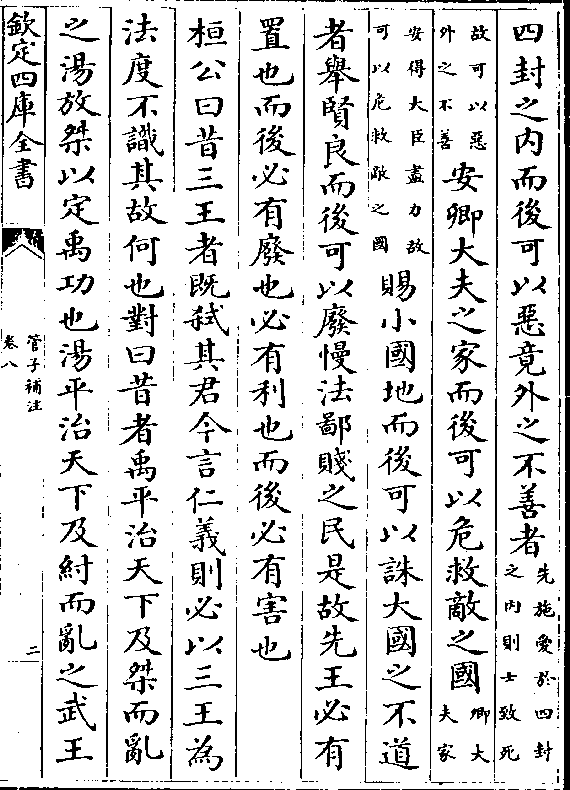 四封之内而後可以惡竟外之不善者先施愛於四封之内則士致死
故可以惡外之不善安卿大夫之家而後可以危救敵之國卿大夫家
安得大臣盡力故可以危救敵之國賜小國地而後可以誅大國之不道
者舉賢良而後可以廢慢法鄙賤之民是故先王必有
置也而後必有廢也必有利也而後必有害也
桓公曰昔三王者既弑其君今言仁義則必以三王為
法度不識其故何也對曰昔者禹平治天下及桀而亂
之湯放桀以定禹功也湯平治天下及紂而亂之武王
欽定四庫全書
管子補注
卷八
二